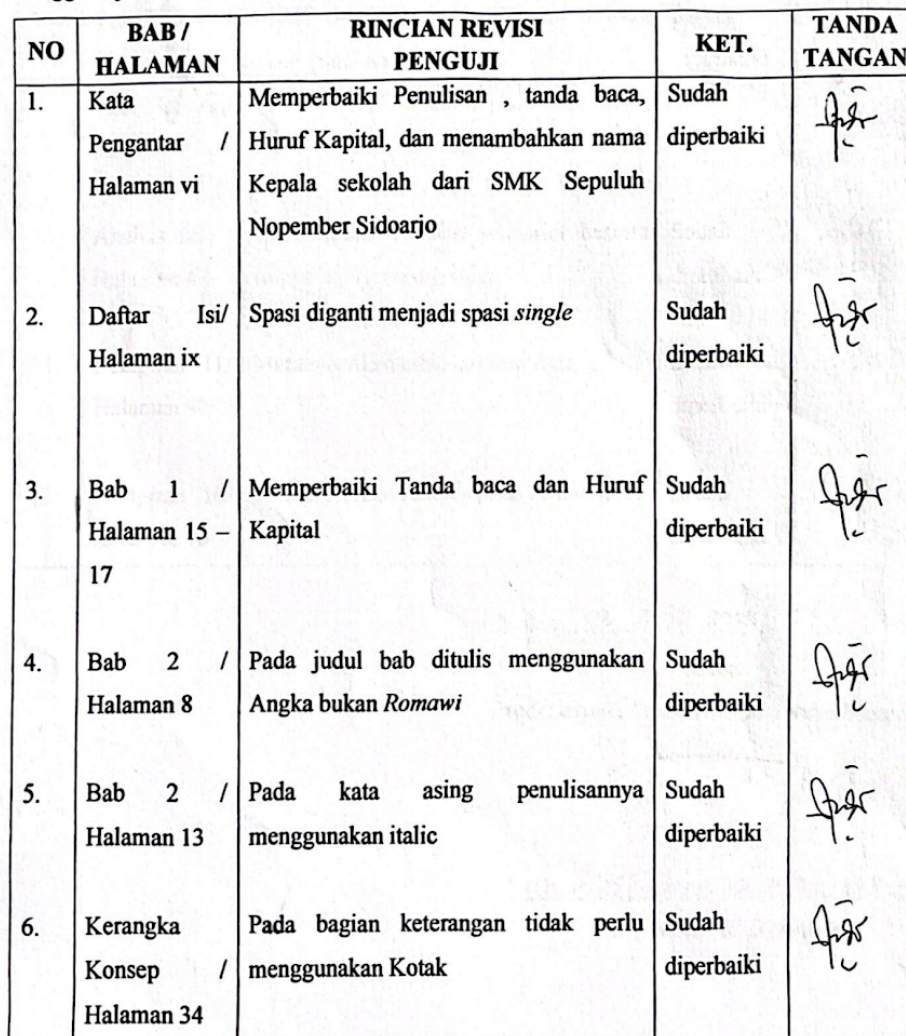 NO
BAB /
HALAMAN
RINCIAN REVISI
PENGUJI
KET.
TANDA
TANGAN
1.
Kata
Pengantar /
Halaman vi
Memperbaiki Penulisan , tanda baca,
Huruf Kapital, dan menambahkan nama
Kepala sekolah dari SMK Sepuluh
Nopember Sidoarjo
Sudah
diperbaiki
2.
Daftar Isi/
Halaman ix
Spasi diganti menjadi spasi single
Sudah
diperbaiki
3.
Bab 1 /
Halaman 15 –
17
Memperbaiki Tanda baca dan Huruf
Kapital
Sudah
diperbaiki
4.
Bab 2 /
Halaman 8
Pada judul bab ditulis menggunakan
Angka bukan Romawi
Sudah
diperbaiki
5.
Bab 2 /
Halaman 13
Pada kata asing penulisannya
menggunakan italic
Sudah
diperbaiki
6.
Kerangka
Konsep /
Halaman 34
Pada bagian keterangan tidak perlu
menggunakan Kotak
Sudah
diperbaiki